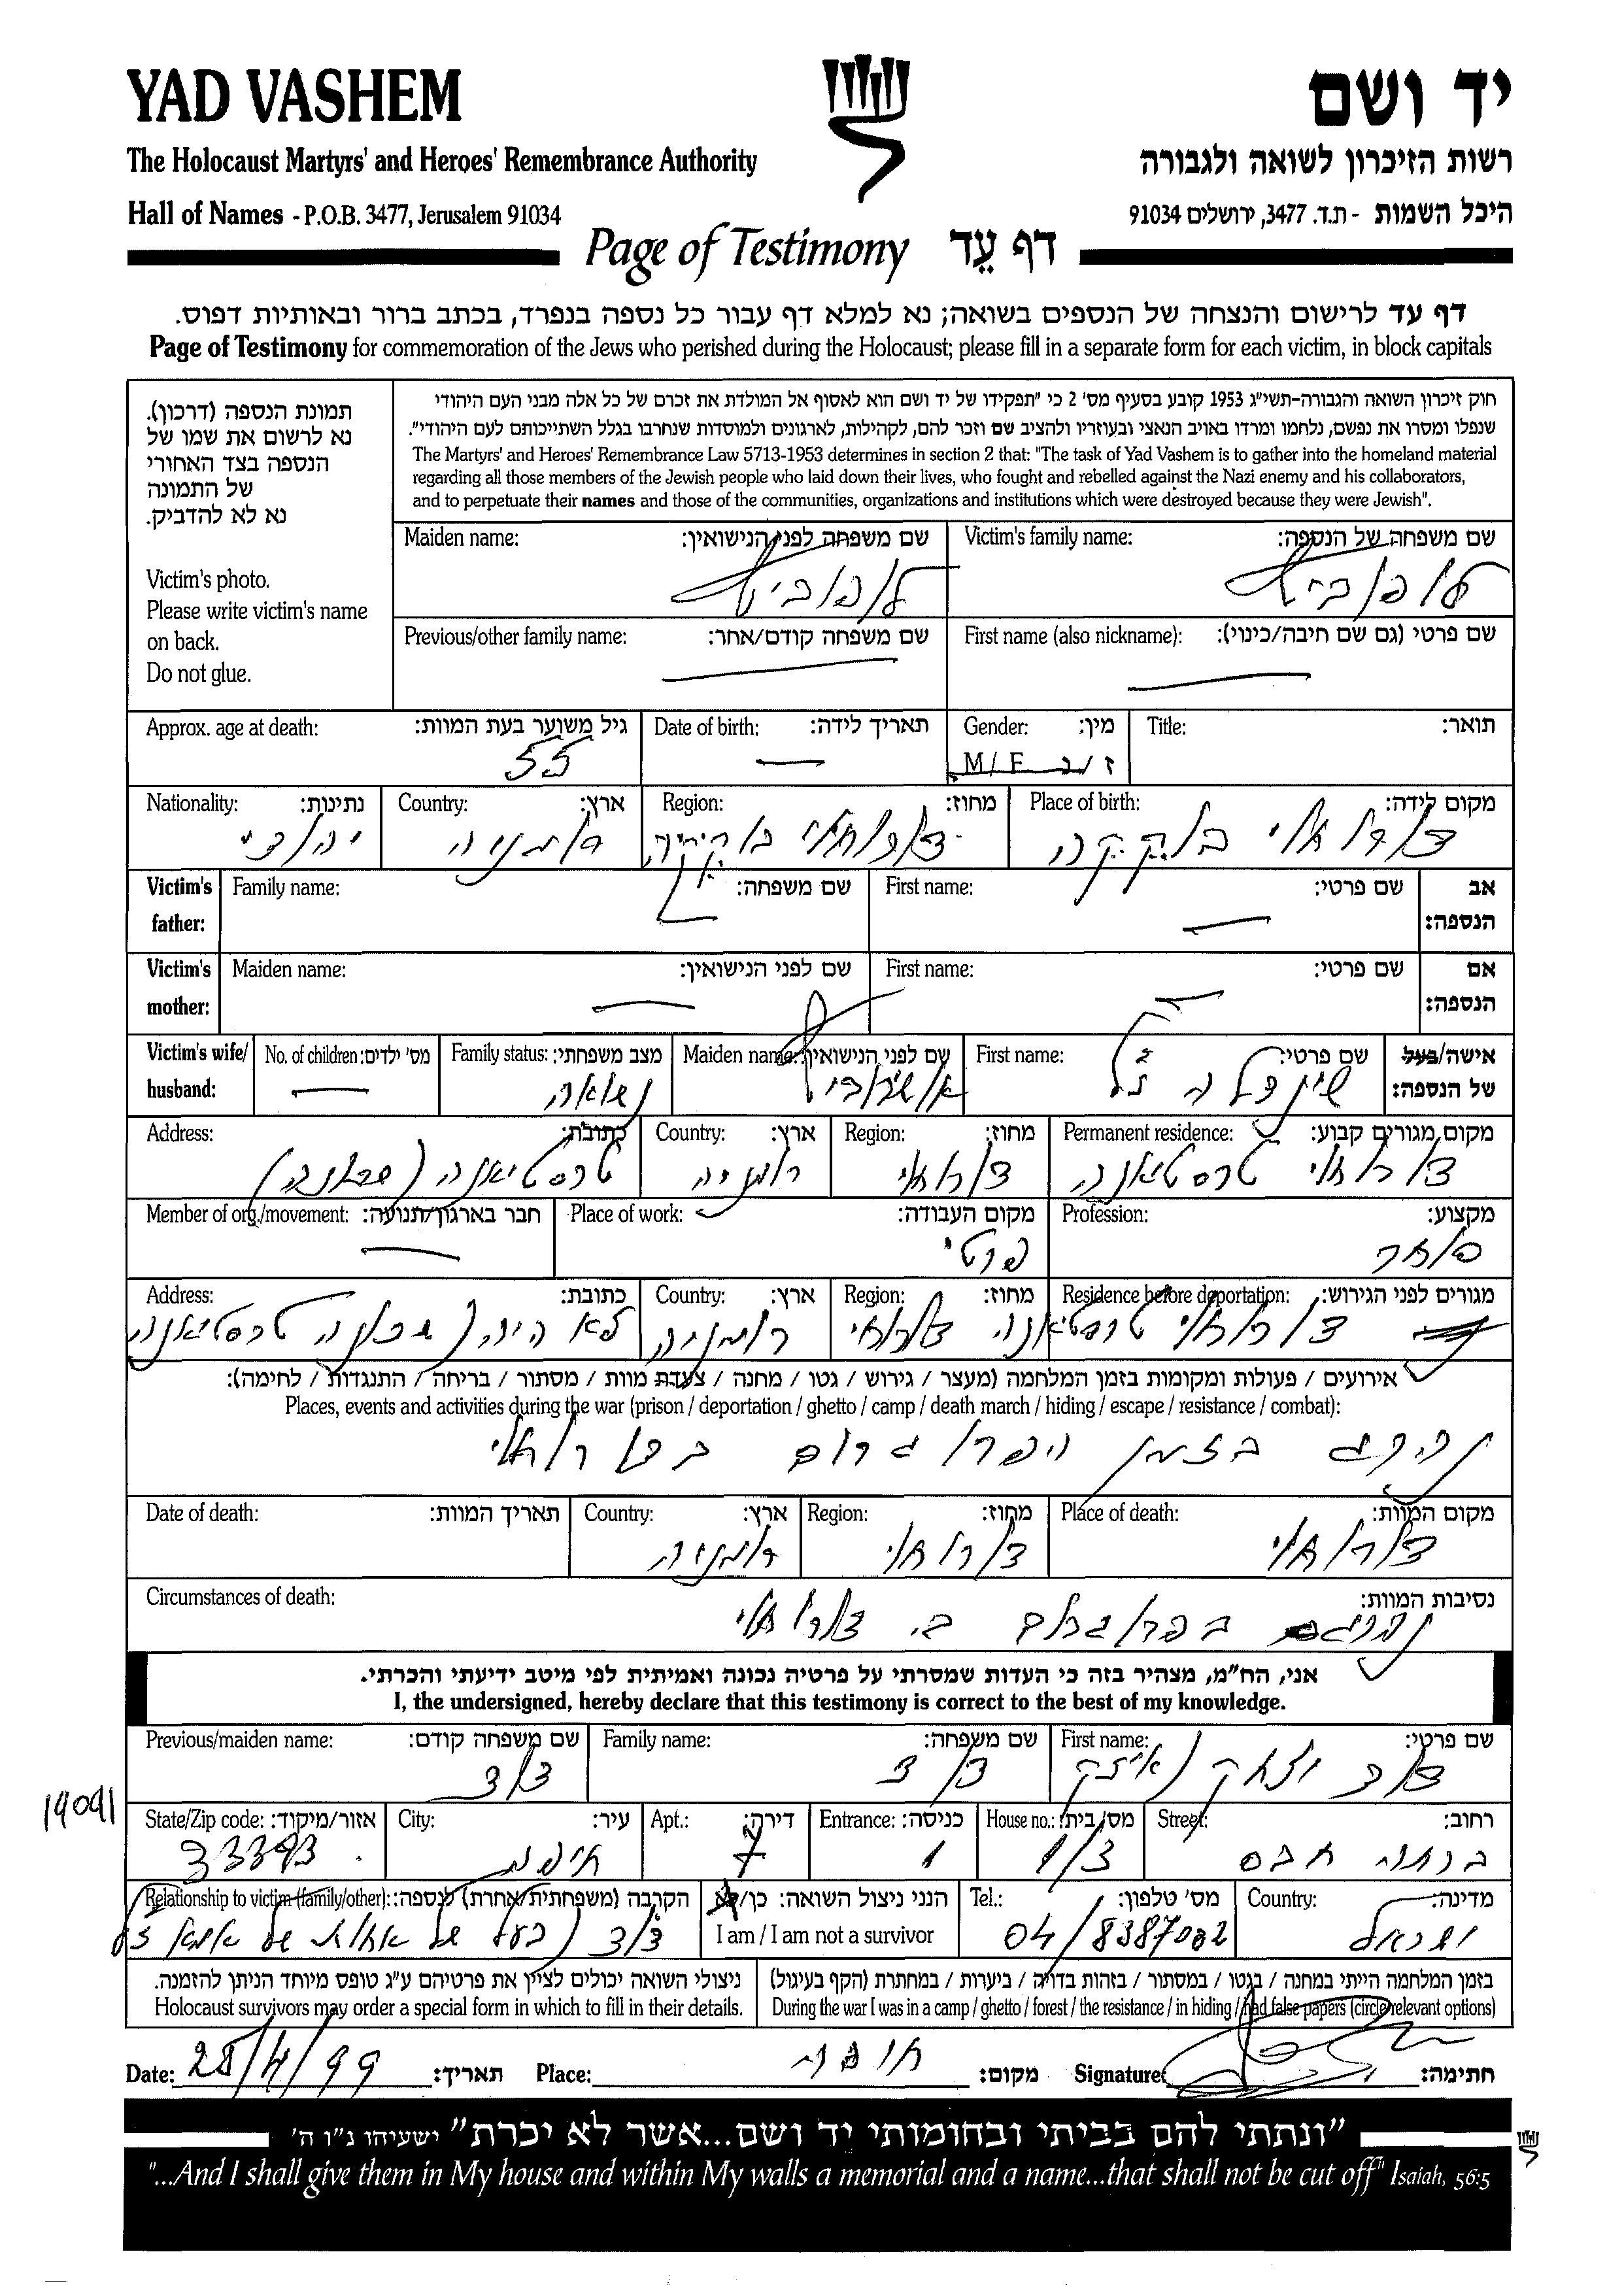 YAD VASHEM
יד ושם
The Holocaust Martyrs' and Heroes' Remembrance Authority
רשות הזיכרון לשואה ולגבורה
Hall of Names - P.O.B. 3477, Jerusalem 91034
היכל השמות - ת.ד. 3477, ירושלים 91034
Page of Testimony דף עֵד
דף עד לרישום והנצחה של הנספים בשואה; נא למלא דף עבור כל נספה בנפרד, בכתב ברור ובאותיות דפוס.
Page of Testimony for commemoration of the Jews who perished during the Holocaust; please fill in a separate form for each victim, in block capitals
תמונת הנספה (דרכון).
נא לרשום את שמו של
הנספה בצד האחורי
של התמונה
נא לא להדביק.
Victim's photo.
Please write victim's name
on back.
Do not glue.
חוק זיכרון השואה והגבורה-תשי"ג 1953 קובע בסעיף מס' 2 כי "תפקידו של יד ושם הוא לאסוף אל המולדת את זכרם של כל אלה מבני העם היהודי
שנפלו ומסרו את נפשם, נלחמו ומרדו באויב הנאצי ובעוזריו ולהציב שם וזכר להם, לקהילות, לארגונים ולמוסדות שנחרבו בגלל השתייכותם לעם היהודי".
The Martyrs' and Heroes' Remembrance Law 5713-1953 determines in section 2 that: "The task of Yad Vashem is to gather into the homeland material
regarding all those members of the Jewish people who laid down their lives, who fought and rebelled against the Nazi enemy and his collaborators,
and to perpetuate their names and those of the communities, organizations and institutions which were destroyed because they were Jewish".
Victim's family name: שם משפחה של הנספה:
Maiden name: שם משפחה לפני הנישואין:
First name (also nickname): שם פרטי (גם שם חיבה/כינוי):
Previous/other family name: שם משפחה קודם/אחר:
Title: תואר:
Gender: מין:
M / F ז / נ
Date of birth: תאריך לידה:
Approx. age at death: גיל משוער בעת המוות:
55
Place of birth: מקום לידה:
Region: מחוז:
Country: ארץ:
רומניה
Nationality: נתינות:
יהודי
Victim's father: אב הנספה:
First name: שם פרטי:
Family name: שם משפחה:
Victim's mother: אם הנספה:
First name: שם פרטי:
Maiden name: שם לפני הנישואין:
Victim's wife/ husband: אישה/בעל של הנספה:
First name: שם פרטי:
Maiden name: שם לפני הנישואין:
Family status: מצב משפחתי:
נשואה
No. of children: מס' ילדים:
Permanent residence: מקום מגורים קבוע:
דורוחוי טרסטיאנה
Region: מחוז:
דורוחוי
Country: ארץ:
רומניה
Address: כתובת:
טרסטיאנה (שכונה)
Profession: מקצוע:
סוחר
Place of work: מקום העבודה:
פרטי
Member of org./movement: חבר בארגון/תנועה:
Residence before deportation: מגורים לפני הגירוש:
דורוחוי טרסטיאנה
Region: מחוז:
דורוחוי
Country: ארץ:
רומניה
Address: כתובת:
לא היה (שכונה טרסטיאנה)
אירועים / פעולות ומקומות בזמן המלחמה (מעצר / גירוש / גטו / מחנה / צעדת מוות / מסתור / בריחה / התנגדות / לחימה):
Places, events and activities during the war (prison / deportation / ghetto / camp / death march / hiding / escape / resistance / combat):
בזמן הפרוגרום
Place of death: מקום המוות:
דורוחוי
Region: מחוז:
דורוחוי
Country: ארץ:
רומניה
Date of death: תאריך המוות:
Circumstances of death: נסיבות המוות:
בפרוגרום ב. דורוחוי
אני, הח"מ, מצהיר בזה כי העדות שמסרתי על פרטיה נכונה ואמיתית לפי מיטב ידיעתי והכרתי.
I, the undersigned, hereby declare that this testimony is correct to the best of my knowledge.
First name: שם פרטי:
דוד יצחק (איציק
Family name: שם משפחה:
Previous/maiden name: שם משפחה קודם:
14091
Street: רחוב:
House no.: מס' בית:
1/3
Entrance: כניסה:
1
Apt.: דירה:
7
City: עיר:
חיפה
State/Zip code: אזור/מיקוד:
33393
Country: מדינה:
ישראל
Tel.: מס' טלפון:
04/8387082
הנני ניצול השואה: כן/לא
I am / I am not a survivor
Relationship to victim (family/other): הקרבה (משפחתית/אחרת) לנספה:
דוד (בעל של אחות של אמא
בזמן המלחמה הייתי במחנה / בגטו / במסתור / בזהות בדויה / ביערות / במחתרת (הקף בעיגול)
During the war I was in a camp / ghetto / forest / the resistance / in hiding / had false papers (circle relevant options)
ניצולי השואה יכולים לציין את פרטיהם ע"ג טופס מיוחד הניתן להזמנה.
Holocaust survivors may order a special form in which to fill in their details.
Date: תאריך:
Place: חיפה מקום:
Signature: חתימה:
"ונתתי להם בביתי ובחומותי יד ושם...אשר לא יכרת" ישעיהו נ"ו ה'
"...And I shall give them in My house and within My walls a memorial and a name...that shall not be cut off" Isaiah, 56:5